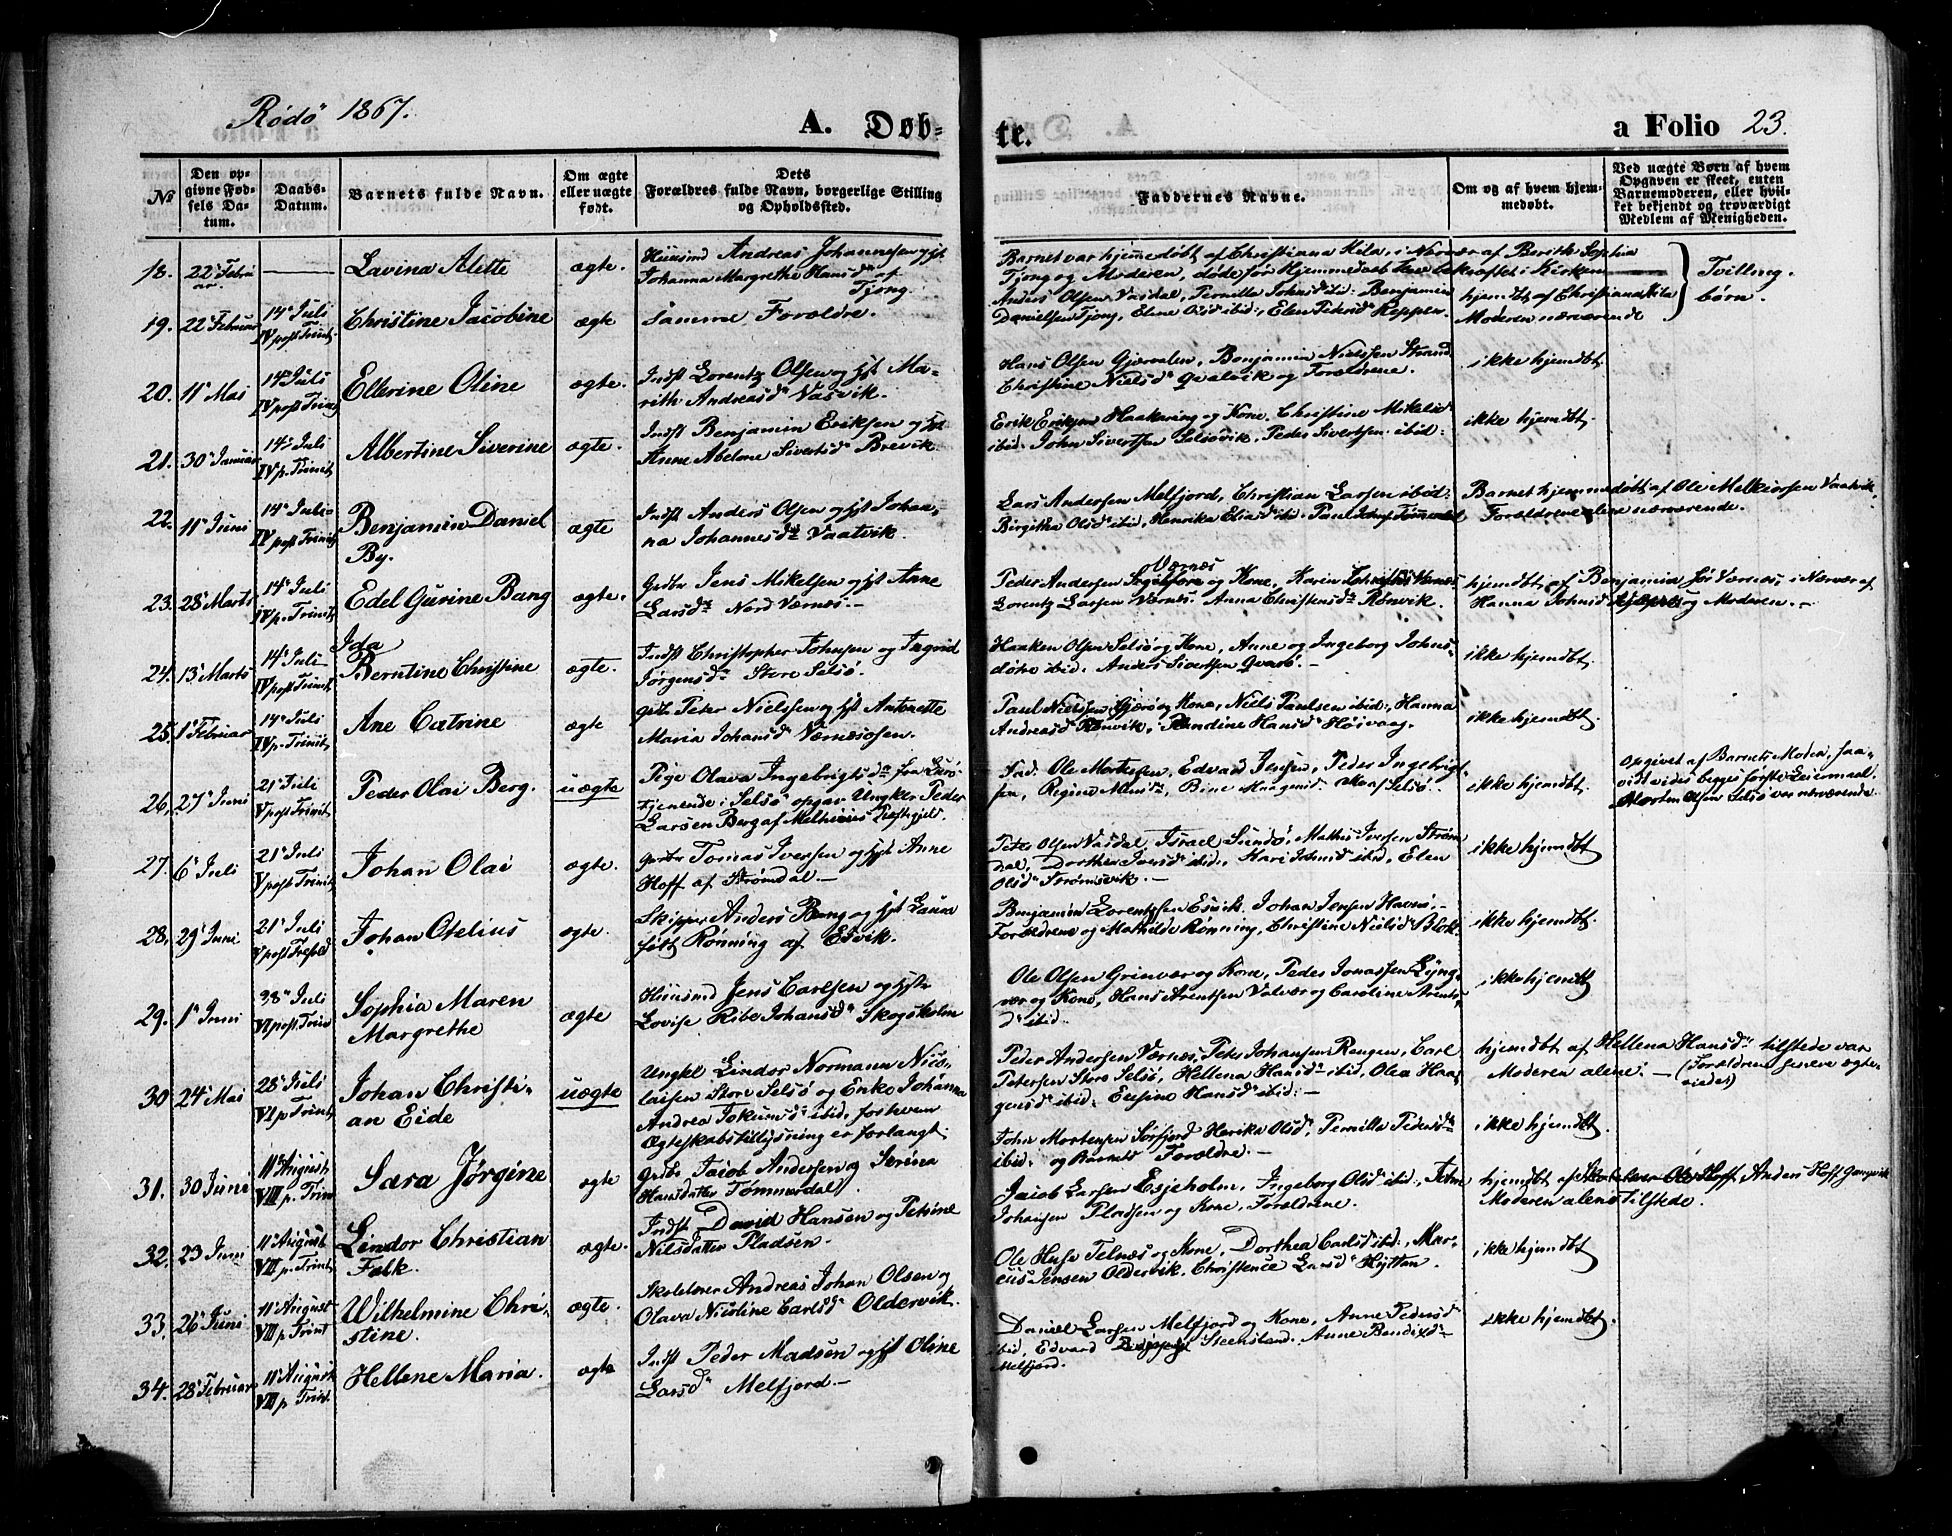 Rødø 1867.
A. Døb-
te.
a Folio 23.
№
Den op-
givne Fød-
sels Da-
tum.
Daabs-
Datum.
Barnets fulde Navn.
Om ægte
eller uægte
født.
Dets
Forældres fulde Navn, borgerlige Stilling
og Opholdssted.
Faddernes Navne.
Om og af hvem hjem-
medøbt.
Ved uægte Børn af hvem
Opgaven er skeet, enten
Barnemoderen, eller hvil-
ket bekjendt og troværdigt
Medlem af Menigheden.
18.
22 Febru
ar.
Lavina Alette
ægte.
Huusmd Andreas Johannesen og hst
Johanna Margrethe Hansd af
Tjong.
Barnet var hjemmedøbt af Christiana Hila, i Nærvær af Berith Sophia
Tjong og Moderen, døde før Hjemmedaab bekræftet i Kirken
Tvilling-
børn.
19.
22 Februar
14 Juli
IV post Trinit.
Christine Jacobine
ægte
Samme Forældre.
Anders Olsen Vasdal, Pernille Johnsd ibid: Benjamin
Danielsen Tjong, Elene Olsd ibid:, Elen Pedersd Reppen.
hjemdøbt af Christiana Hila
Moderen nærværende
20.
11 Mai
14 Juli
IV post Trinit.
Ellerine Oline
ægte.
Indst Lorentz Olsen og hst Ma-
rith Andreasd Vasvik.
Hans Olsen Gjervalen, Benjamin Nielssen Strand
Christine Nielsd Qvalvik og Forældrene.
ikke hjemdøbt
21.
30 Januar
14 Juli
IV p. Trinit.
Albertine Siverine
ægte.
Indst Benjamin Eriksen og hst
Anne Abelone Sivertsd Brevik.
Erik Eriksen Haakøring og Kone, Christine Mikelsd
ibid. John Sivertsen Selsøvik, Peder Sivertsen ibid:
ikke hjemdøbt.
22.
11 Juni
14 Juli
IV post Trinit.
Benjamin Daniel
By.
ægte
Indst Anders Olsen og hst Johan-
na Johannesd Vaatvik.
Lars Andersen Melfjord, Christian Larsen ibid:
Birgitha Olsd ibid, Henrika Eliasd ibid. Paul
Barnet hjemmedøbt af Ole Melkiorsen Vaatvik,
Forældrene alene nærværende.
23.
28 Marts
14 Juli
IV p. Trinit.
Edel Gurine Bang
ægte.
Gdbr Jens Mikelsen og hst Anne
Larsd Nord Værnes.
Værnes
Peder Andersen og Kone, Karin Værnes
Lorentz Larsen Værnes. Anna Christensd Rønvik.
hjemdøbt af Benjamin Værnes, i Nærvær af
Hanna Johnsd og Moderen.
24.
13 Marts
14 Juli
IV post Trinit.
Ida
Berntine Christine
ægte.
Indst Christopher Johnsen og Ingrid
Jørgensd Store Selsø.
Haaken Olsen Selsø og Kone, Anne og Ingeborg Johns-
døtre ibid. Anders Sivertsen Qvarø.
ikke hjemdøbt.
25.
1 Februar
14 Juli
IV p. Trinit.
Ane Catrine
ægte
Gdbr Peter Nielsen og hst Antonette
Maria Johansd Værnesosen.
Paul Nielsen Gjørø og Kone, Niels Paulsen ibid:, Hanna
Andreasd Rønvik, Randine Hansd Høivaag.
ikke hjemdøbt.
26.
27 Juni
21 Juli
V post Trinit.
Peder Olai Berg.
uægte
Pige Olava Ingebrigtsd fra Lurø
tjenende i Selsø opgav Ungkar Peder
Larsen Berg af Melhuus Præstegjeld.
Fad. Ole Mortensen, Edvard Jensen, Peder Ingebrigt-
sen, Regine, Bine Haagensd. Alle af Selsø.
ikke hjemdøbt
Opgivet af Barnets Moder, saa-
vidt vides begges første Leiermaal.
Morten Olsen Selsø var nærværende.
27.
6 Juli
21 Juli
V post Trinit.
Johan Olai
ægte.
Gdbr Tomas Iversen og hst Anne
Hoff af Strømdal.
Peter Olsen Vasdal, Israel Sundø, Mathis Iversen Strøm-
dal, Dorthea Iversd ibid., Kari Johnsd ibid, Elen
Olsd Strømsvik.
ikke hjemdøbt
28.
29 Juni
21 Juli
V post Trefold
Johan Otelius
ægte.
Skipper Anders Bang og hst Laura
født Rønning af Esvik.
Benjamin Lorentzsen Esvik. Johan Jensen Havnø,
Forældrene og Mathilde Rønning, Christine Nielsd Blok.
ikke hjemdøbt.
29.
1 Juni
28 Juli
VI post. Trin
Sophia Maren
Margrethe
ægte
Huusmd Jens Carlsen og hst
Lovise Ribe Johansd Skogsholm
Ole Olsen Grinvær og Kone, Peder Jonassen Lyng-
vær og Kone, Hans Arentsen Valvær og Caroline Arents-
d ibid.
ikke hjemdøbt
30
24 Mai
28 Juli
VI p Trinit.
Johan Christi-
an Eide
uægte
Ungkl Lindor Normann Nico-
laisen Store Selsø og Enke Johanna
Andrea Jokumsd ibid. for hvem
Ægteskabstillysning er forlangt.
Peder Andersen Værnes, Peter Johansen Rengen, Carl
Petersen Store Selsø, Hellena Hansd ibid, Olea Haa-
gensd ibid. Eusine Hansd ibid:
hjemdøbt af Hellena Hansd tilstede var
Moderen alene. (Forældrene senere ægte-
viedes)
31.
30 Juni
11 August
VIII p. Trin
Sara Jørgine
ægte
Gdbr Jacob Andersen og Serina
Hansdatter Tømmerdal.
John Mortensen Sørfjord Henrika Olsd, Pernille Pedersd
ibid. og Barnets Forældre.
ikke hjemdøbt.
32.
23 Juni
11 August
VIII p. Trinit.
Lindor Christian
Falk.
ægte.
Indst David Hansen og Petrine
Nilsdatter Pladsen.
Jacob Larsen Esjeholm, Ingeborg Olsd ibid., John
Johansen Pladsen og Kone, Forældrene.
hjemdøbt af Anders Hoff
Moderen alene tilstede.
33.
26 Juni
11 August
VIII p. Trinit
Wilhelmine Chri-
stine.
ægte.
Skolelærer Andreas Johan Olsen og
Olava Nicoline Carlsd Oldervik.
Ole Telnæs og Kone, Dorthea Carlsd ibid:, Mar-
cus Jensen Oldervik. Christence Larsd Hytten.
ikke hjemdøbt
34.
28 Februar
11 August
VIII p. Trinit.
Hellene Maria.
ægte
Indst Peder Madsen og hst Oline
Larsd Melfjord.
Daniel Larsen Melfjord og Kone, Anne Pedersd
ibid, Edvard Steensland. Anne Bendixd
Melfjord.
ikke hjemdøbt.